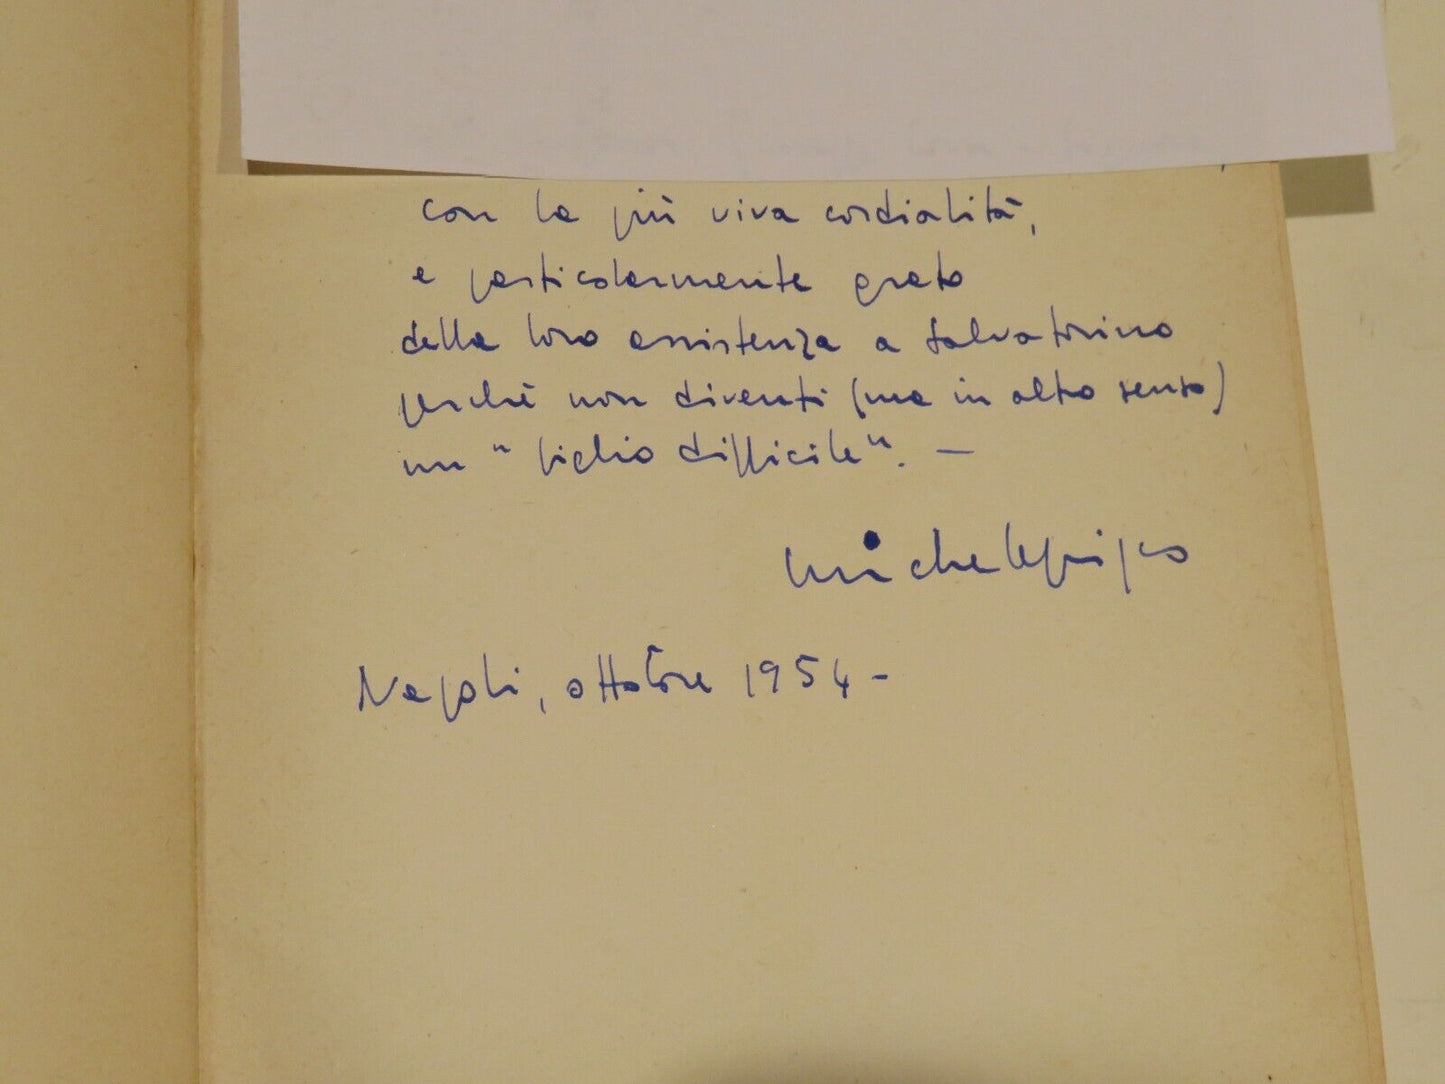 con la più viva cordialità,
e particolarmente grato
della loro assistenza a Salvatorino
perchè non diventi (ma in altro senso)
un "figlio difficile". —
Michele Prisco
Napoli, ottobre 1954 -